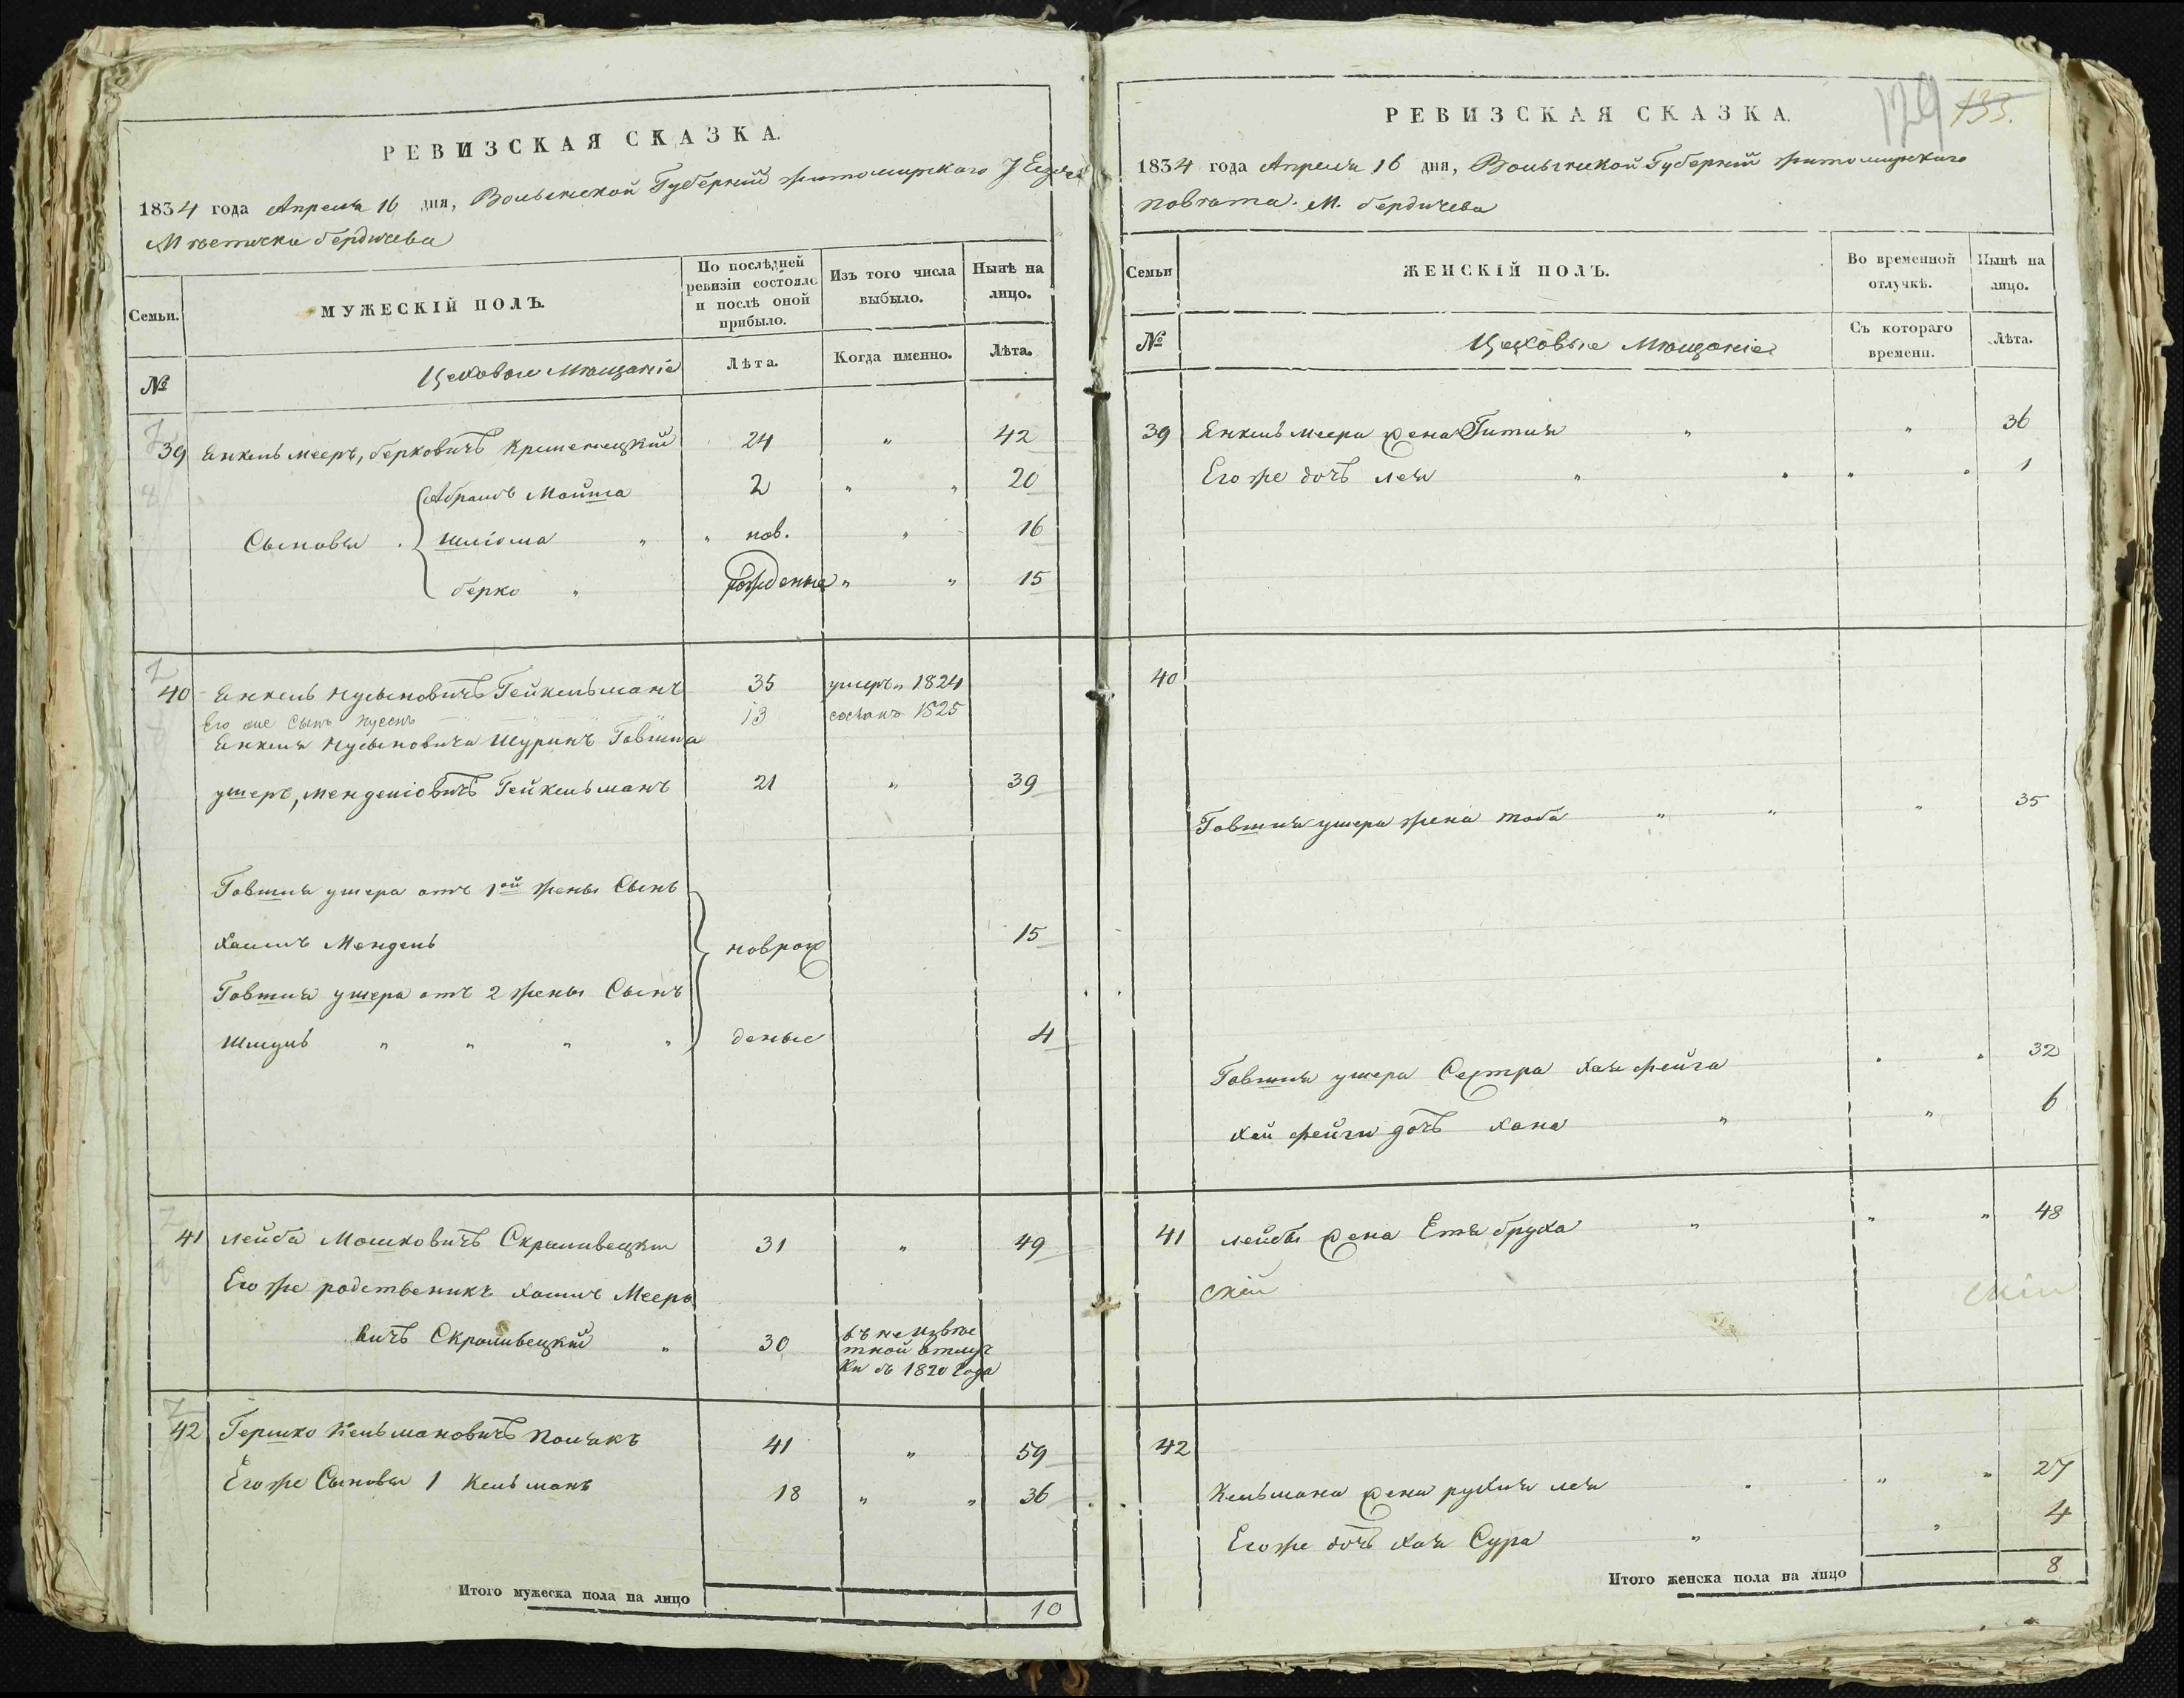 РЕВИЗСКАЯ СКАЗКА.
1834 года Апреля 16 дня, Волынской Губерніи Житомирскаго
Мѣстичка Бердичева
Семьи.
МУЖЕСКІЙ ПОЛЪ.
По послѣдней ревизіи состояло и послѣ оной прибыло.
Изъ того числа выбыло.
Нынѣ на лицо.
№
Цеховые Мѣщаніе
Лѣта.
Когда именно.
Лѣта.
39 Янкель Мееръ, Берковичъ Кременецкій 24 " 42
Абрамъ Мойша 2 " " 20
Сыновья Шліома " " нов. " 16
Берко " рожденные " " 15
40 Янкель Нусыновичъ Гейкельманъ 35 умеръ 1824
Его же Сынъ Нусенъ 13 1825
Янкеля Нусыновича Шуринъ Говшия
Ушеръ, Менделіовичъ Гейкельманъ 21 " 39
Говшия Ушера отъ 1ой жены Сынъ
Хаимъ Мендель новрож 15
Говшия Ушера отъ 2 жены Сынъ
Шмуль " " " " деные 4
41 Лейба Мошковичъ Скрашивецкій 31 " 49
Его же родственикъ Хаимъ Меера
вичъ Скрашивецкій " 30 въ неизвѣс
тной отлуч
ки съ 1820 года
42 Гершко Кельмановичъ Полякъ 41 " 59
Его же Сыновья 1 Кельманъ 18 " " 36
Итого мужеска пола на лицо 10
129 133.
РЕВИЗСКАЯ СКАЗКА.
1834 года Апреля 16 дня, Волынской Губерніи Житомирскаго
повѣта. М. Бердичева
Семьи
ЖЕНСКІЙ ПОЛЪ.
Во временной отлучкѣ.
Нынѣ на лицо.
№
Цеховые Мѣщаніе
Съ котораго времени.
Лѣта.
39 Янкель Меера жена Гитля " " 36
Его же дочъ Лея " " " " 1
40
Говшия Ушера жена Тоба " " " 35
Говшия Ушера Сестра Хая Фейга " " 32
Хаи Фейги дочъ Хана " " 6
41 Лейбы жена Етя Бруха " " " 48
скій скій
42
Кельмана жена Рухля Лея " " " 27
Его же дочъ Хая Сура " " 4
Итого женска пола на лицо 8